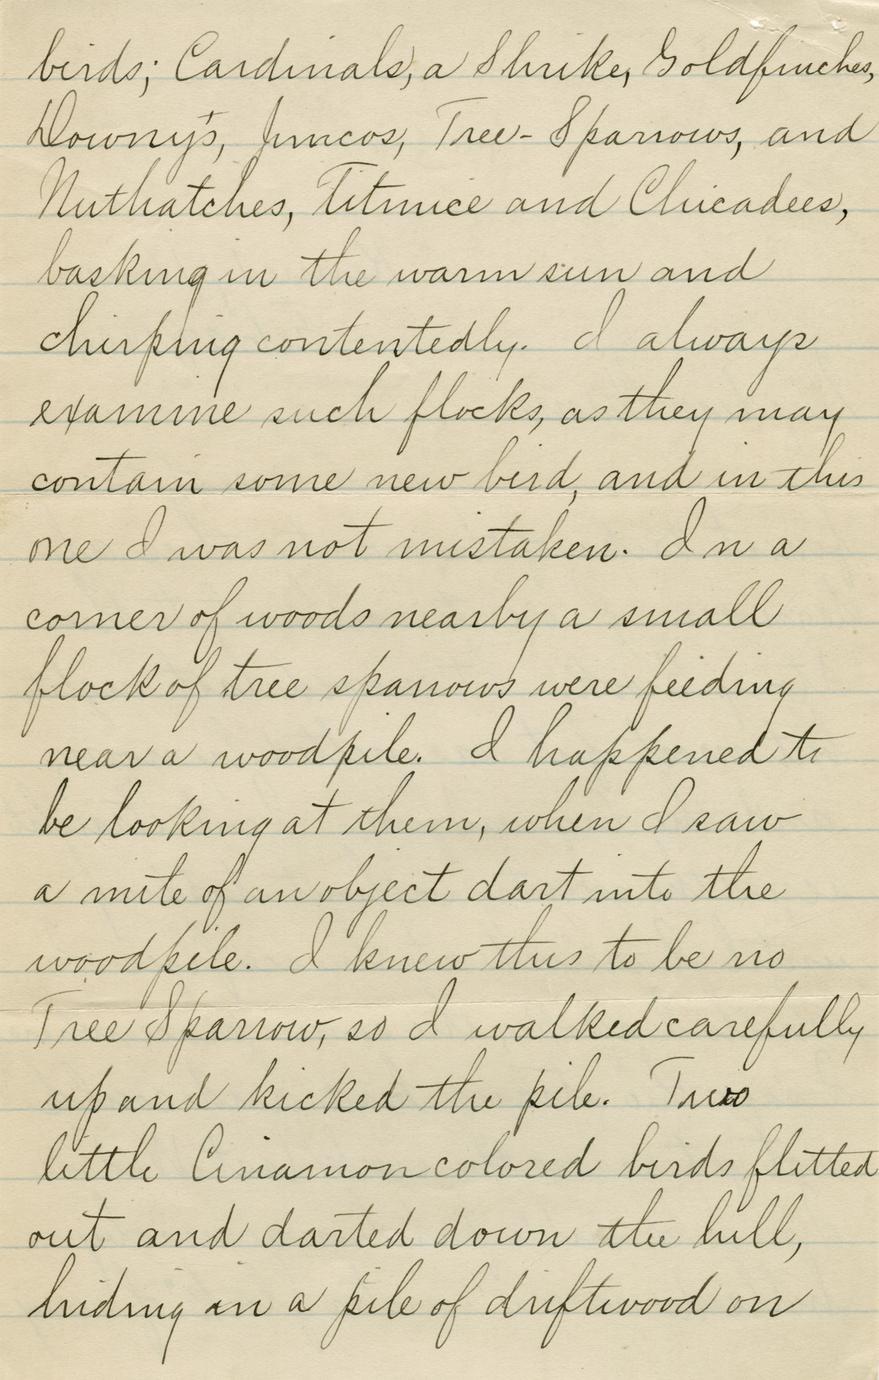 birds; Cardinals, a Shrike, Goldfinches,
Downy's, Juncos, Tree-Sparrows, and
Nuthatches, Titmice and Chicadees,
basking in the warm sun and
chirping contentedly. I always
examine such flocks, as they may
contain some new bird, and in this
one I was not mistaken. In a
corner of woods nearby a small
flock of tree sparrows were feeding
near a woodpile. I happened to
be looking at them, when I saw
a mite of an object dart into the
woodpile. I knew this to be no
Tree Sparrow, so I walked carefully
up and kicked the pile. Two
little Cinamon colored birds flitted
out and darted down the hill,
hiding in a pile of driftwood on